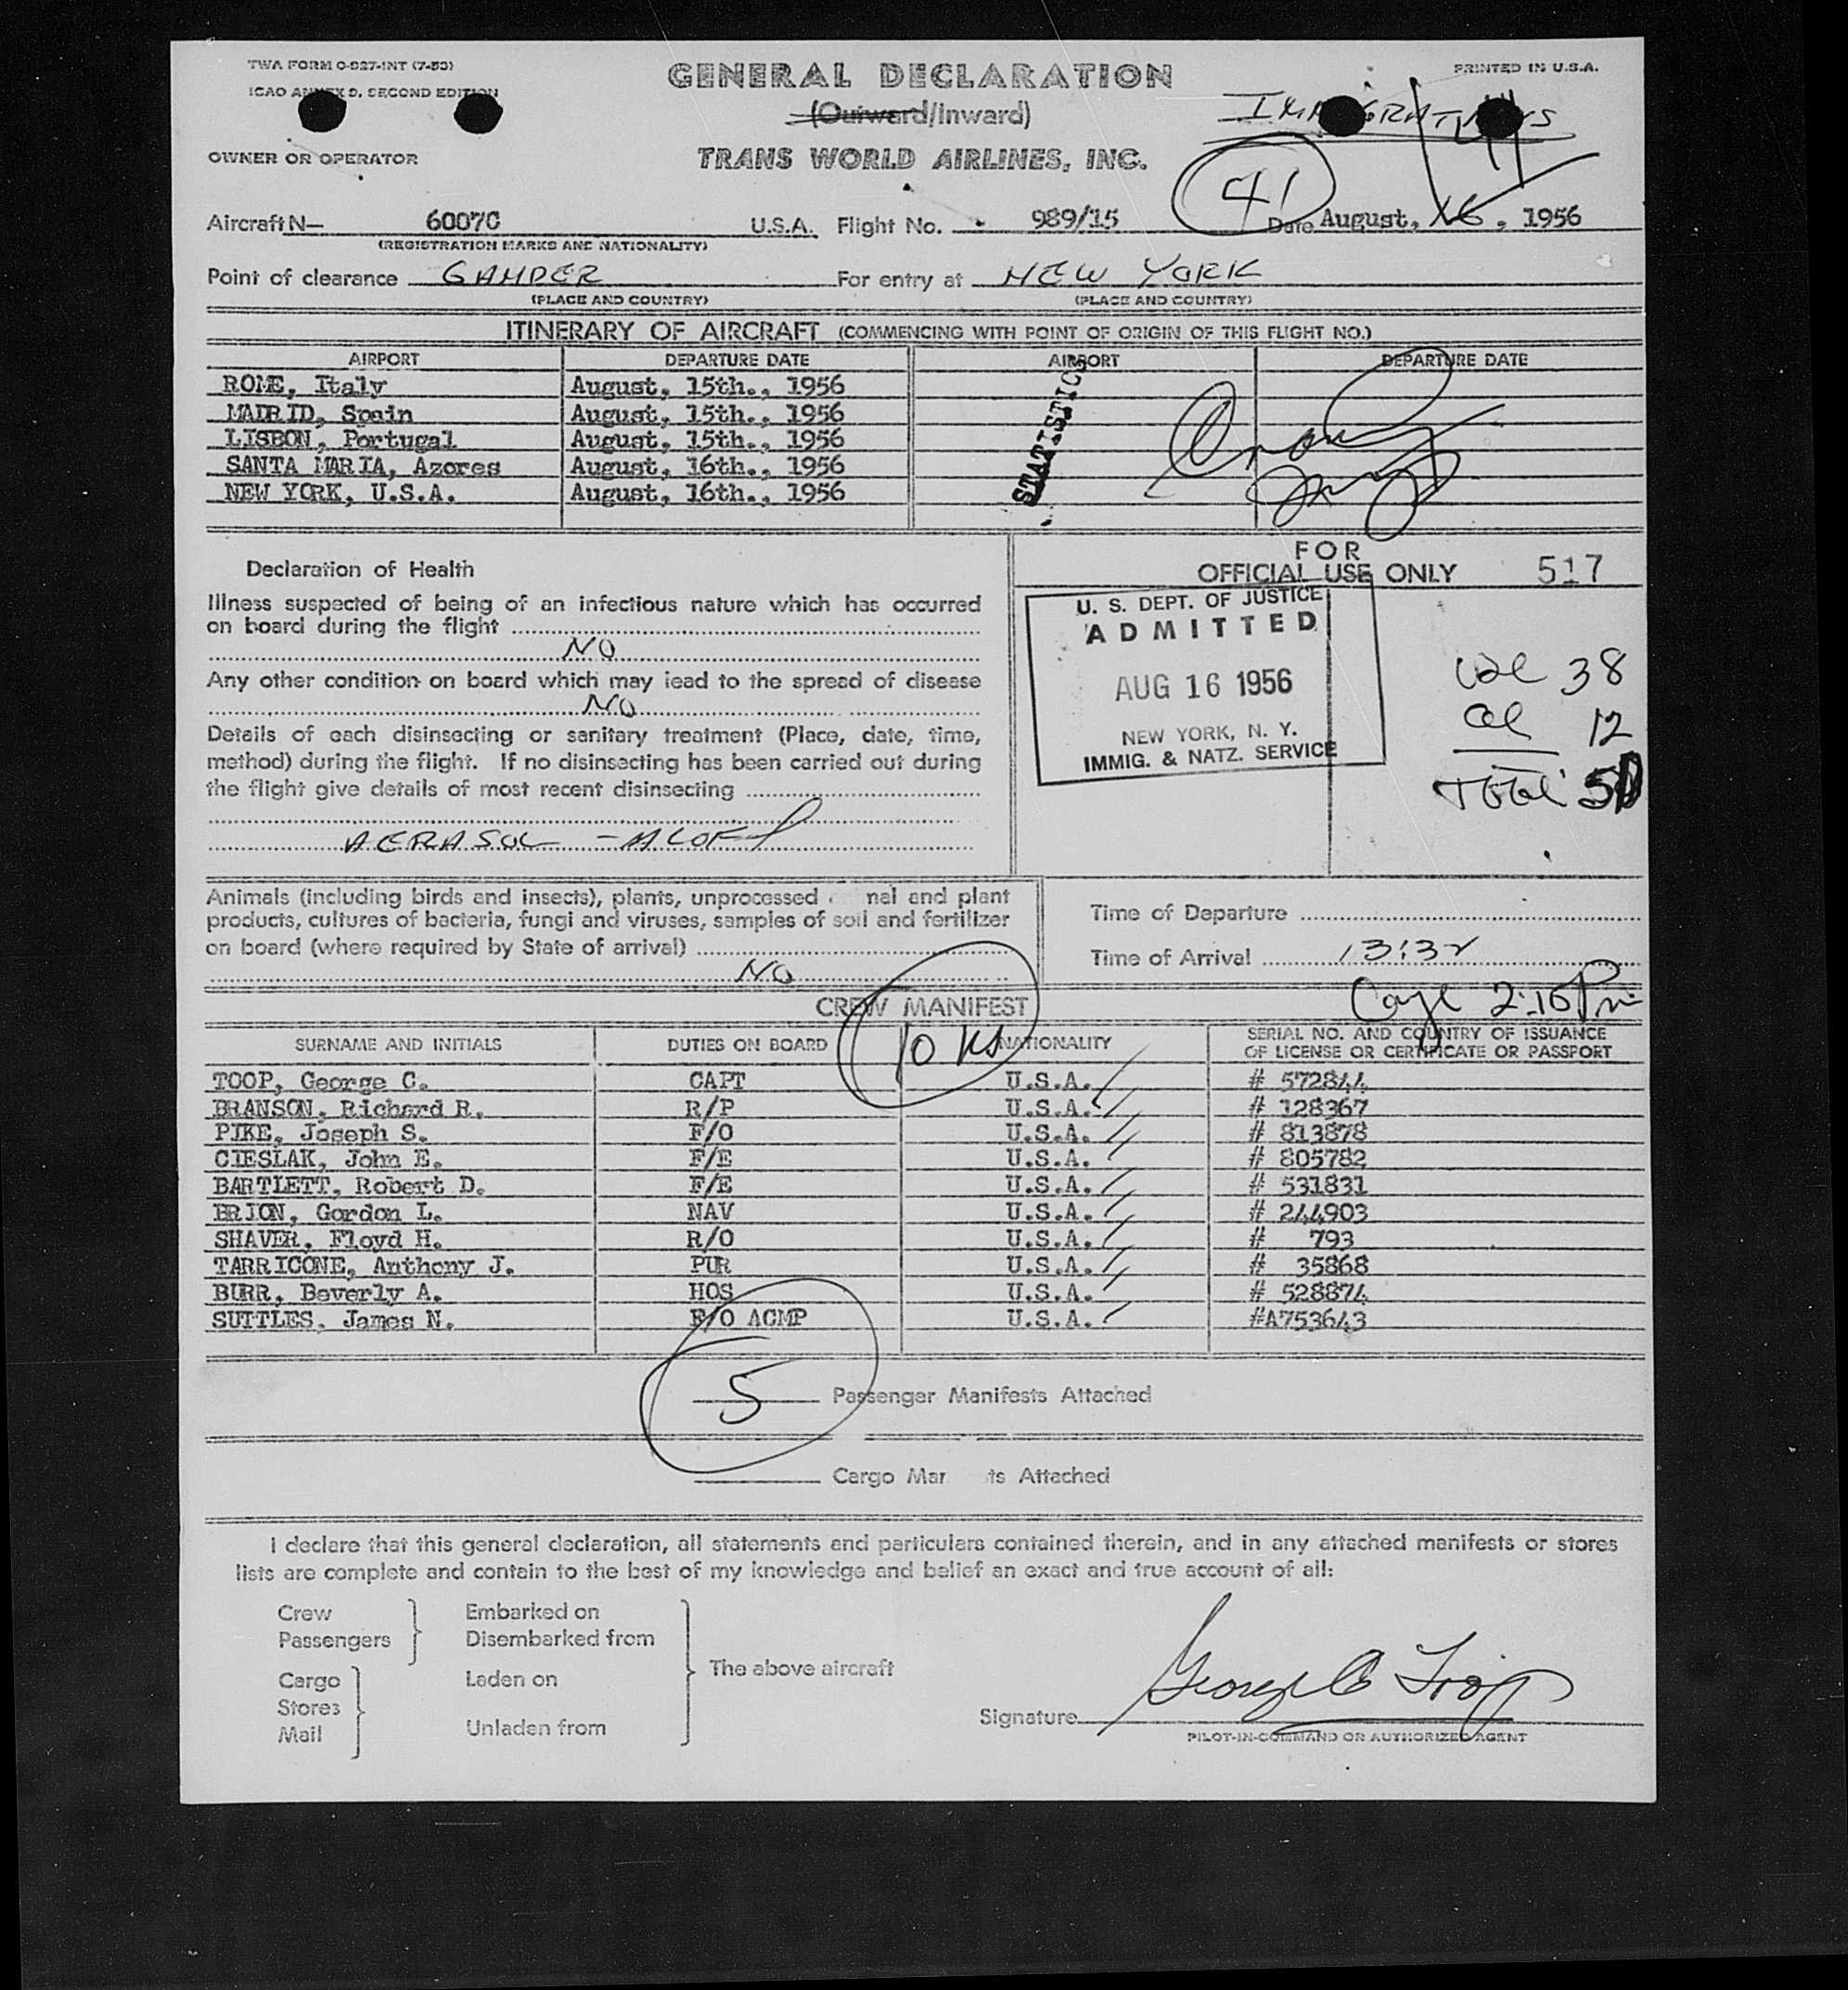 TWA FORM O-927-INT (7-53)
GENERAL DECLARATION
PRINTED IN U.S.A.
ICAO ANNEX 9, SECOND EDITION
(Outward/Inward)
IMMIGRATION
OWNER OR OPERATOR
TRANS WORLD AIRLINES, INC.
41
Aircraft N— 6007C U.S.A. Flight No. 989/15 Date August, 16, 1956
(REGISTRATION MARKS AND NATIONALITY)
Point of clearance GANDER For entry at NEW YORK
(PLACE AND COUNTRY) (PLACE AND COUNTRY)
ITINERARY OF AIRCRAFT (COMMENCING WITH POINT OF ORIGIN OF THIS FLIGHT NO.)
AIRPORT DEPARTURE DATE AIRPORT DEPARTURE DATE
ROME, Italy August, 15th., 1956
MADRID, Spain August, 15th., 1956
LISBON, Portugal August, 15th., 1956
SANTA MARIA, Azores August, 16th., 1956
NEW YORK, U.S.A. August, 16th., 1956
STATISTICS
FOR
OFFICIAL USE ONLY 517
Declaration of Health
Illness suspected of being of an infectious nature which has occurred
on board during the flight
NO
Any other condition on board which may lead to the spread of disease
NO
Details of each disinsecting or sanitary treatment (Place, date, time,
method) during the flight. If no disinsecting has been carried out during
the flight give details of most recent disinsecting
AERASOL - ALOFT
U. S. DEPT. OF JUSTICE
ADMITTED
AUG 16 1956
NEW YORK, N. Y.
IMMIG. & NATZ. SERVICE
38
12
Total 50
Animals (including birds and insects), plants, unprocessed nal and plant
products, cultures of bacteria, fungi and viruses, samples of soil and fertilizer
on board (where required by State of arrival)
NO
Time of Departure
Time of Arrival 13:32
2:10 Pm
CREW MANIFEST
10
SURNAME AND INITIALS DUTIES ON BOARD NATIONALITY SERIAL NO. AND COUNTRY OF ISSUANCE
OF LICENSE OR CERTIFICATE OR PASSPORT
TOOP, George C. CAPT U.S.A. # 572844
BRANSON, Richard R. R/P U.S.A. # 128367
PIKE, Joseph S. F/O U.S.A. # 813878
CIESLAK, John E. F/E U.S.A. # 805782
BARTLETT, Robert D. F/E U.S.A. # 531831
BRION, Gordon L. NAV U.S.A. # 244903
SHAVER, Floyd H. R/O U.S.A. # 793
TARRICONE, Anthony J. PUR U.S.A. # 35868
BURR, Beverly A. HOS U.S.A. # 528874
SUTTLES, James N. F/O ACMP U.S.A. #A753643
5 Passenger Manifests Attached
Cargo Mar ts Attached
I declare that this general declaration, all statements and particulars contained therein, and in any attached manifests or stores
lists are complete and contain to the best of my knowledge and belief an exact and true account of all:
Crew
Passengers
Embarked on
Disembarked from
Cargo
Stores
Mail
Laden on
Unladen from
The above aircraft
Signature George C Toop
PILOT-IN-COMMAND OR AUTHORIZED AGENT